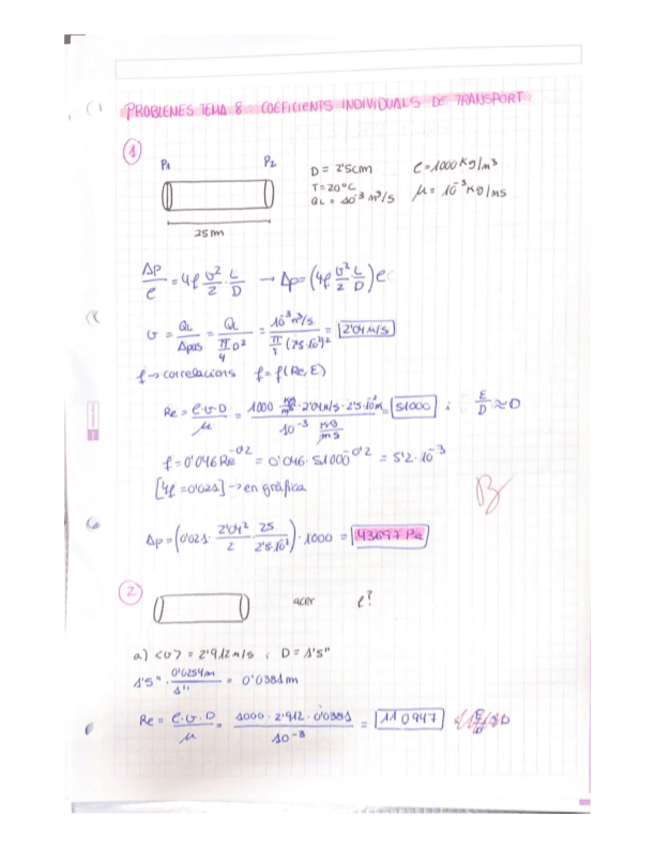 PROBLEMES TEMA 8 COEFICIENTS INDIVIDUALS DE TRANSPORT
1
P1 P2
D = 2'5cm ρ=1000 Kg/m³
T=20ºC μ= 10⁻³ Kg/ms
QL = 10⁻³ m³/s
25m
Δp/ρ = 4f v²/2 · L/D → Δp=(4f v²/2 L/D)ρ
v = QL/Apas = QL/(π/4 D²) = 10⁻³ m³/s / (π/4 (25·10⁻³)²) = 2'04 m/s
f → correlacions f=f(Re, ε)
Re = ρ·v·D/μ = 1000 kg/m³ · 2'04m/s · 2'5·10⁻²m / 10⁻³ kg/ms = 51000 ; ε/D ≈ 0
f=0'046 Re⁻⁰'² = 0'046 · 51000⁻⁰'² = 5'2·10⁻³
[4f =0'021] → en gràfica
Δp = (0'021 · 2'04²/2 · 25/2'5·10⁻²) · 1000 = 43697 Pa
2
acer f?
a) <v> = 2'912 m/s ; D= 1'5"
1'5" · 0'0254m/1" = 0'0381m
Re = ρ·v·D/μ = 1000 · 2'912 · 0'0381 / 10⁻³ = 110947